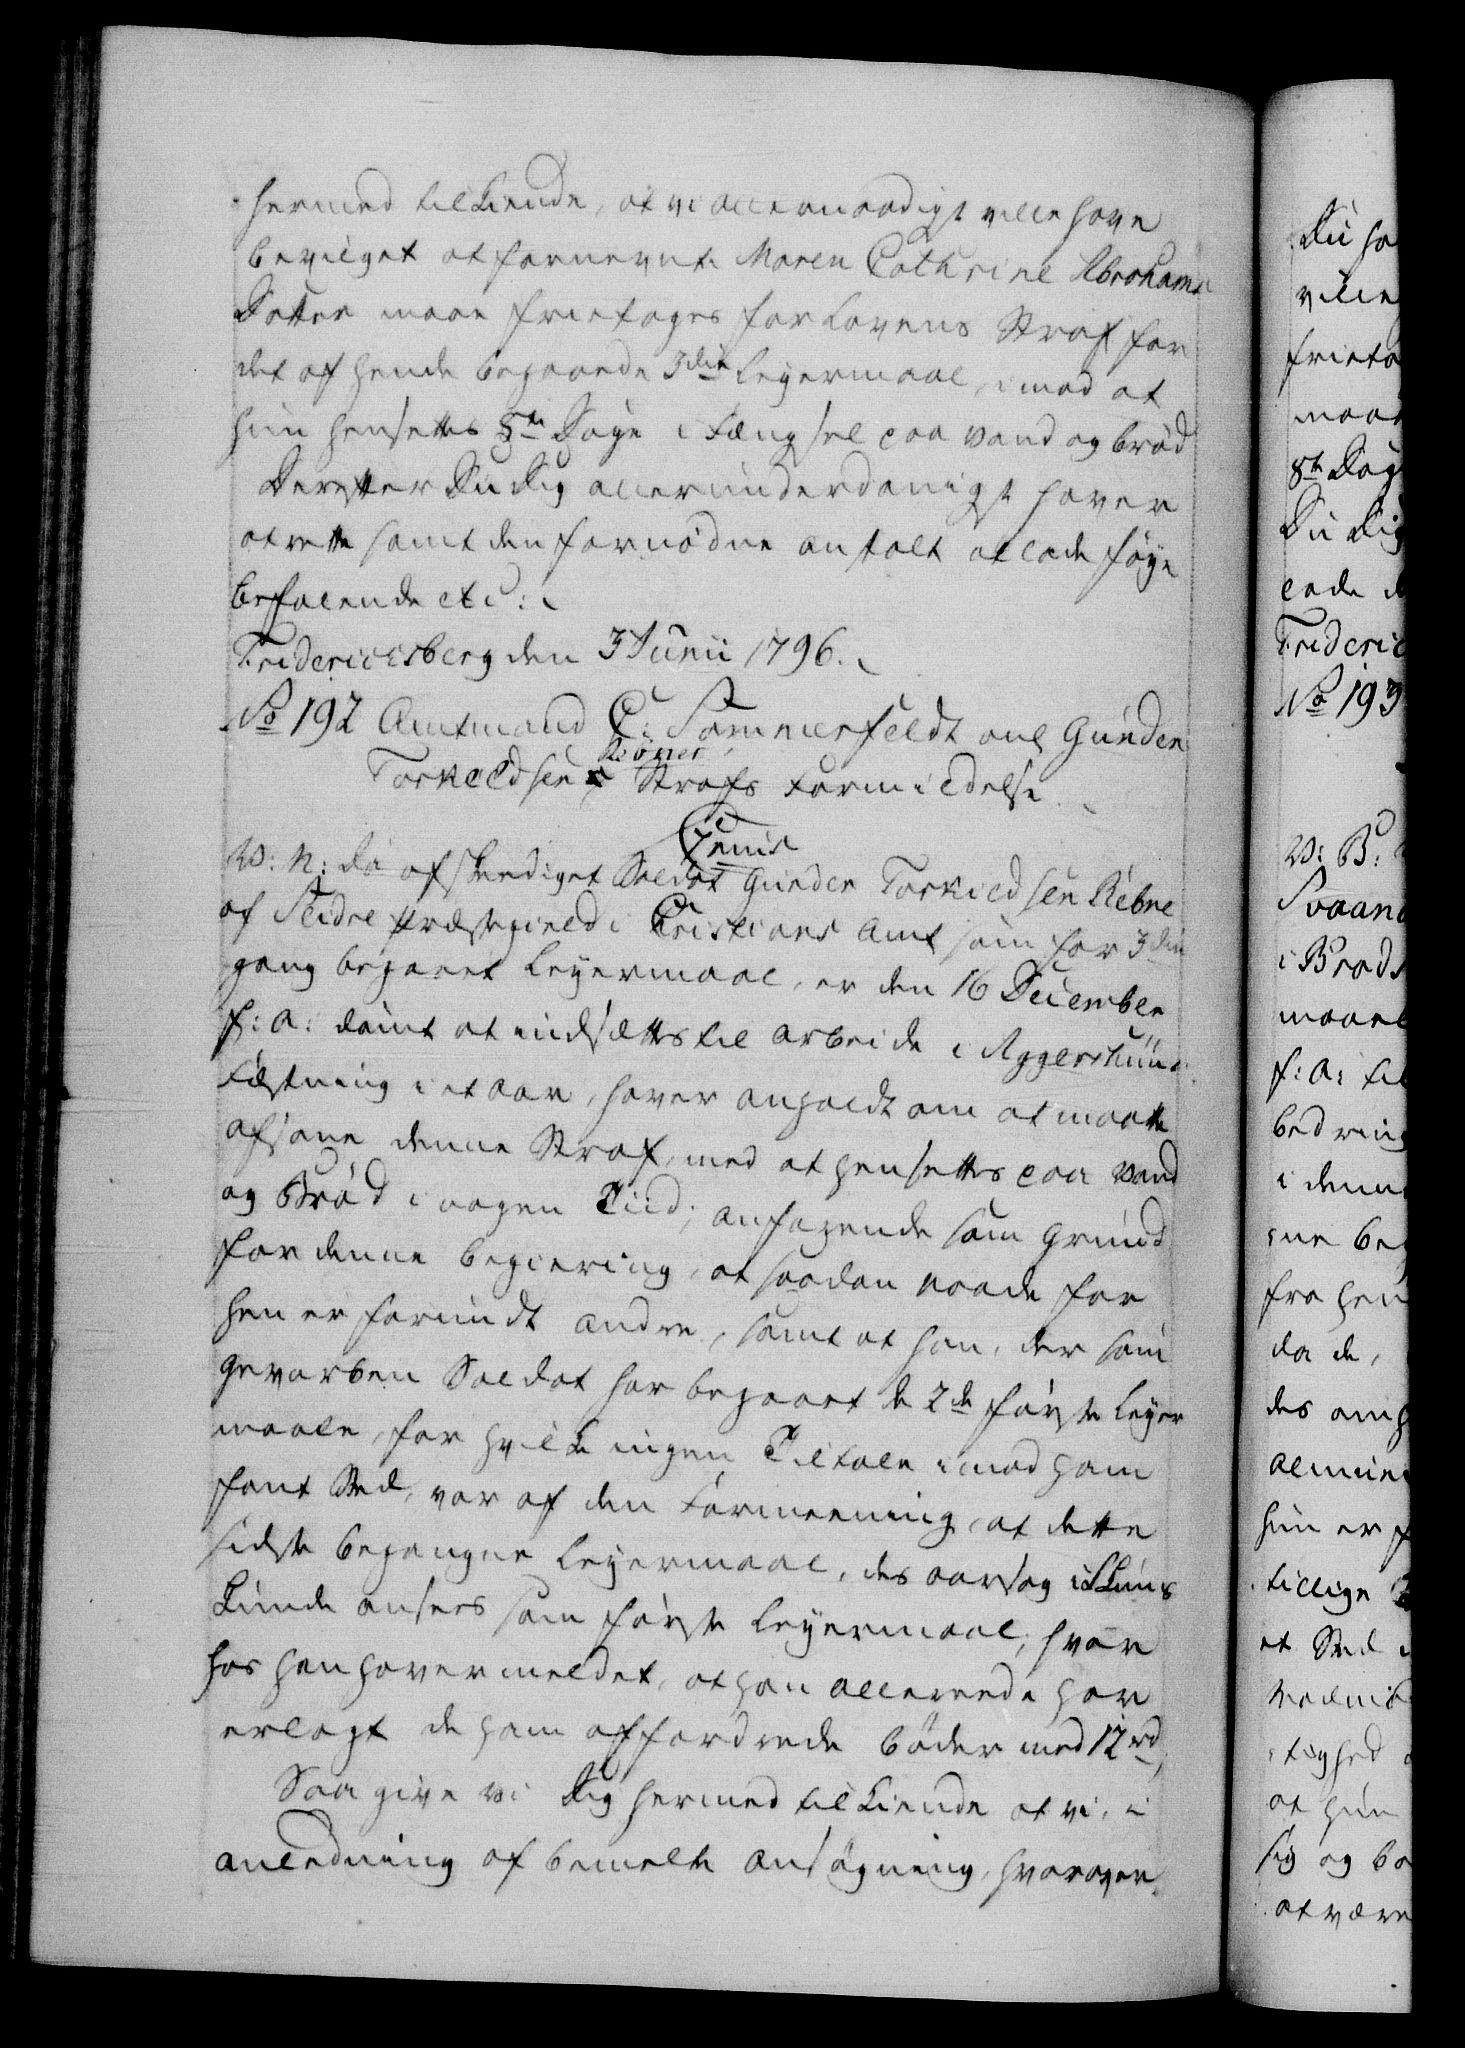 hermed tilkiende, at vi allernaadigst ville have
bevilget at fornevnte Maren Cathrine Abrahams
Datter maae frietages for Lovens Straf for
det af hende begaaede 3die Leyermaal, imod at
hun hensettes 8te Dage i Fængsel paa vand og brød
Derefter Du Dig allerunderdanigst haver
at rette samt den fornødne anstalt at lade føye
befalende etc:
Fridericisberg den 3 Junii 1796.
No 192 Amtmand C: Sommerfeldt anl Gunder
Torkeldsen Røner Strafs Formildelse
Genis
W: N: Da afskediget Soldat Gunder Torkildsen Røbne
af Slidre Præstegield i Cristians Amt som for 3die
gang begaaet Leyermaal, er den 16 December
f: a: dømt at indsættes til arbeide i Aggershuus
Fæstning i et aar, haver anholdt om at maatte
afsone denne Straf, med at hensettes paa vand
og Brød i nogen Tiid; anførende som Grund
for denne begiering, at saadan naade for
hen er forundt andre, samt at han, der som
gevorben Soldat har begaaet de 2de første Leyer
maale, for hvilke ingen Tiltale imod ham
fant Sted, var af den Formeening, at dette
sidste begangne Leyermaal, des aarsag
kunde ansees som første Leyermaal, hvor
hos han haver meldet, at han allereede har
erlagt de ham affordrede bøder med 12 rd,
Saa give vi Dig hermed tilkiende at vi, i
anledning af bemelte ansøgning, hvorover
Du ha
ville
frieta
maal
8te Dag
Du Dig
lade
Frideric
No 193
W: B:
Svaan
i Brads
maael
f: a: til
bedring
i denn
fra hen
da de,
des omh
almin
hun er f
tillige
et Sted
at hun
sig og bo
at være